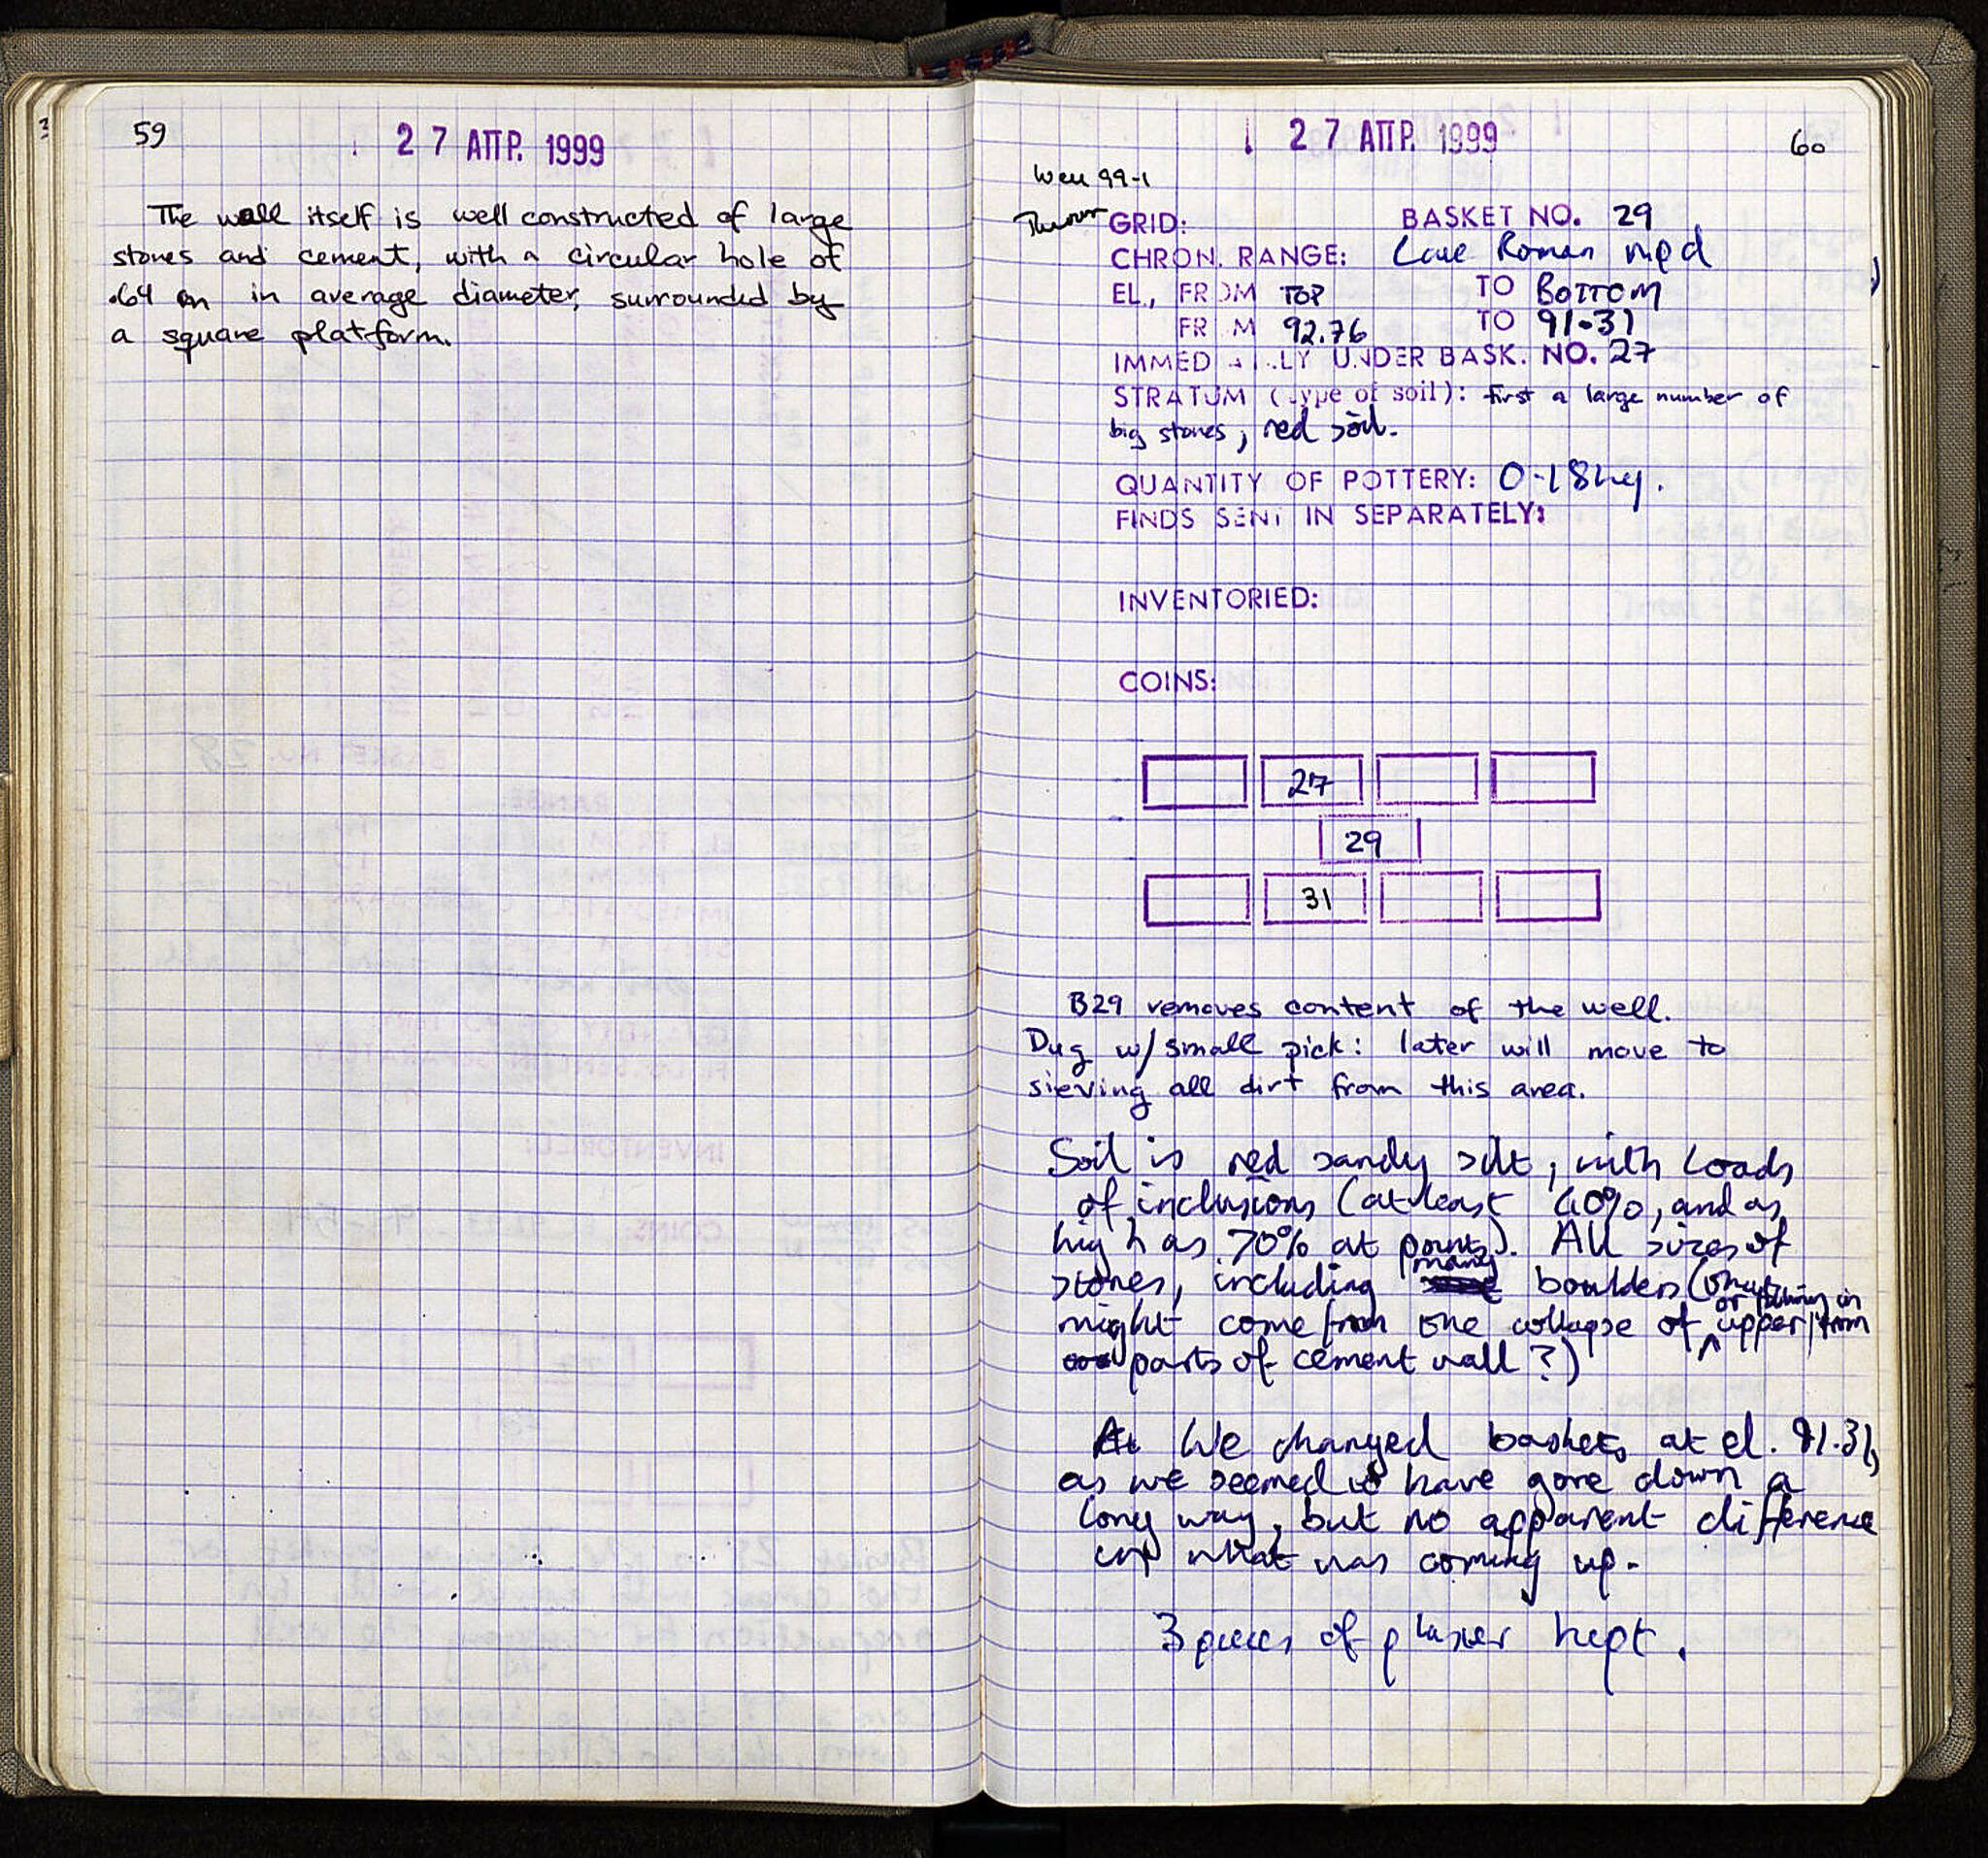 59
27 ΑΠΡ. 1999
The well itself is well constructed of large
stones and cement, with a circular hole of
.64 m in average diameter, surrounded by
a square platform.
27 ΑΠΡ. 1999
60
Well 99-1
GRID: BASKET NO. 29
CHRON. RANGE: Late Roman
EL., FROM TOP TO BOTTOM
FROM 92.76 TO 91.31
IMMEDIATELY UNDER BASK. NO. 27
STRATUM (type of soil): first a large number of
big stones, red soil.
QUANTITY OF POTTERY: 0.18kg.
FINDS SENT IN SEPARATELY:
INVENTORIED:
COINS:
27
29
31
B29 removes content of the well.
Dug w/ small pick: later will move to
sieving all dirt from this area.
Soil is red sandy silt, with loads
of inclusions (at least 40%, and as
high as 70% at points). All sizes of
stones, including many boulders (that
might come from the collapse of or falling in from upper
parts of cement wall?)
We changed baskets at el. 91.31,
as we seemed to have gone down a
long way, but no apparent difference
in what was coming up.
3 pieces of plaster kept.